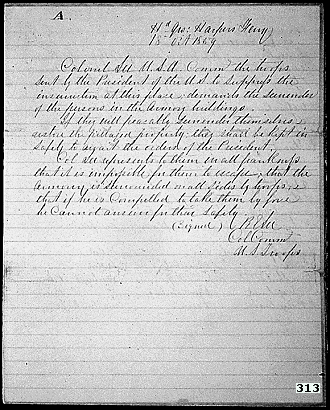 A.
Hd Qrs: Harpers Ferry
18 Oct 1859
Colonel Lee U.S.A. Commg the troops
sent by the President of the U.S. to suppress the
insurrection at this place, demands the surrender
of the persons in the Armory buildings.
If they will peacably surrender themselves &
restore the pillaged property, they shall be kept in
safety to await the orders of the President.
Col Lee represents to them in all frankness
that it is impossible for them to escape, that the
Armory is surrounded on all sides by troops, &
that if he is compelled to take them by force
he cannot answer for their safety
(Signed) R E Lee
Col Commg
U.S. Troops
313